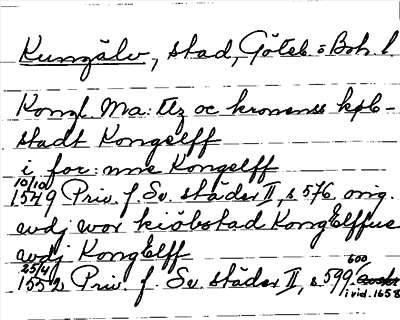 Kungälv, stad, Göteb. o Boh. l.
Kongl. Ma: ttz oc kronenss köb-
stadt Kongelff
i for: nne Kongelff
10/10
1549 Priv. f. Sv. städer II, s. 576. orig.
udj wor kiöbstad KongElffue
udj KongElff
25/4 600,
1552 Priv. f. Sv. städer II, s. 599.
i vid. 1658